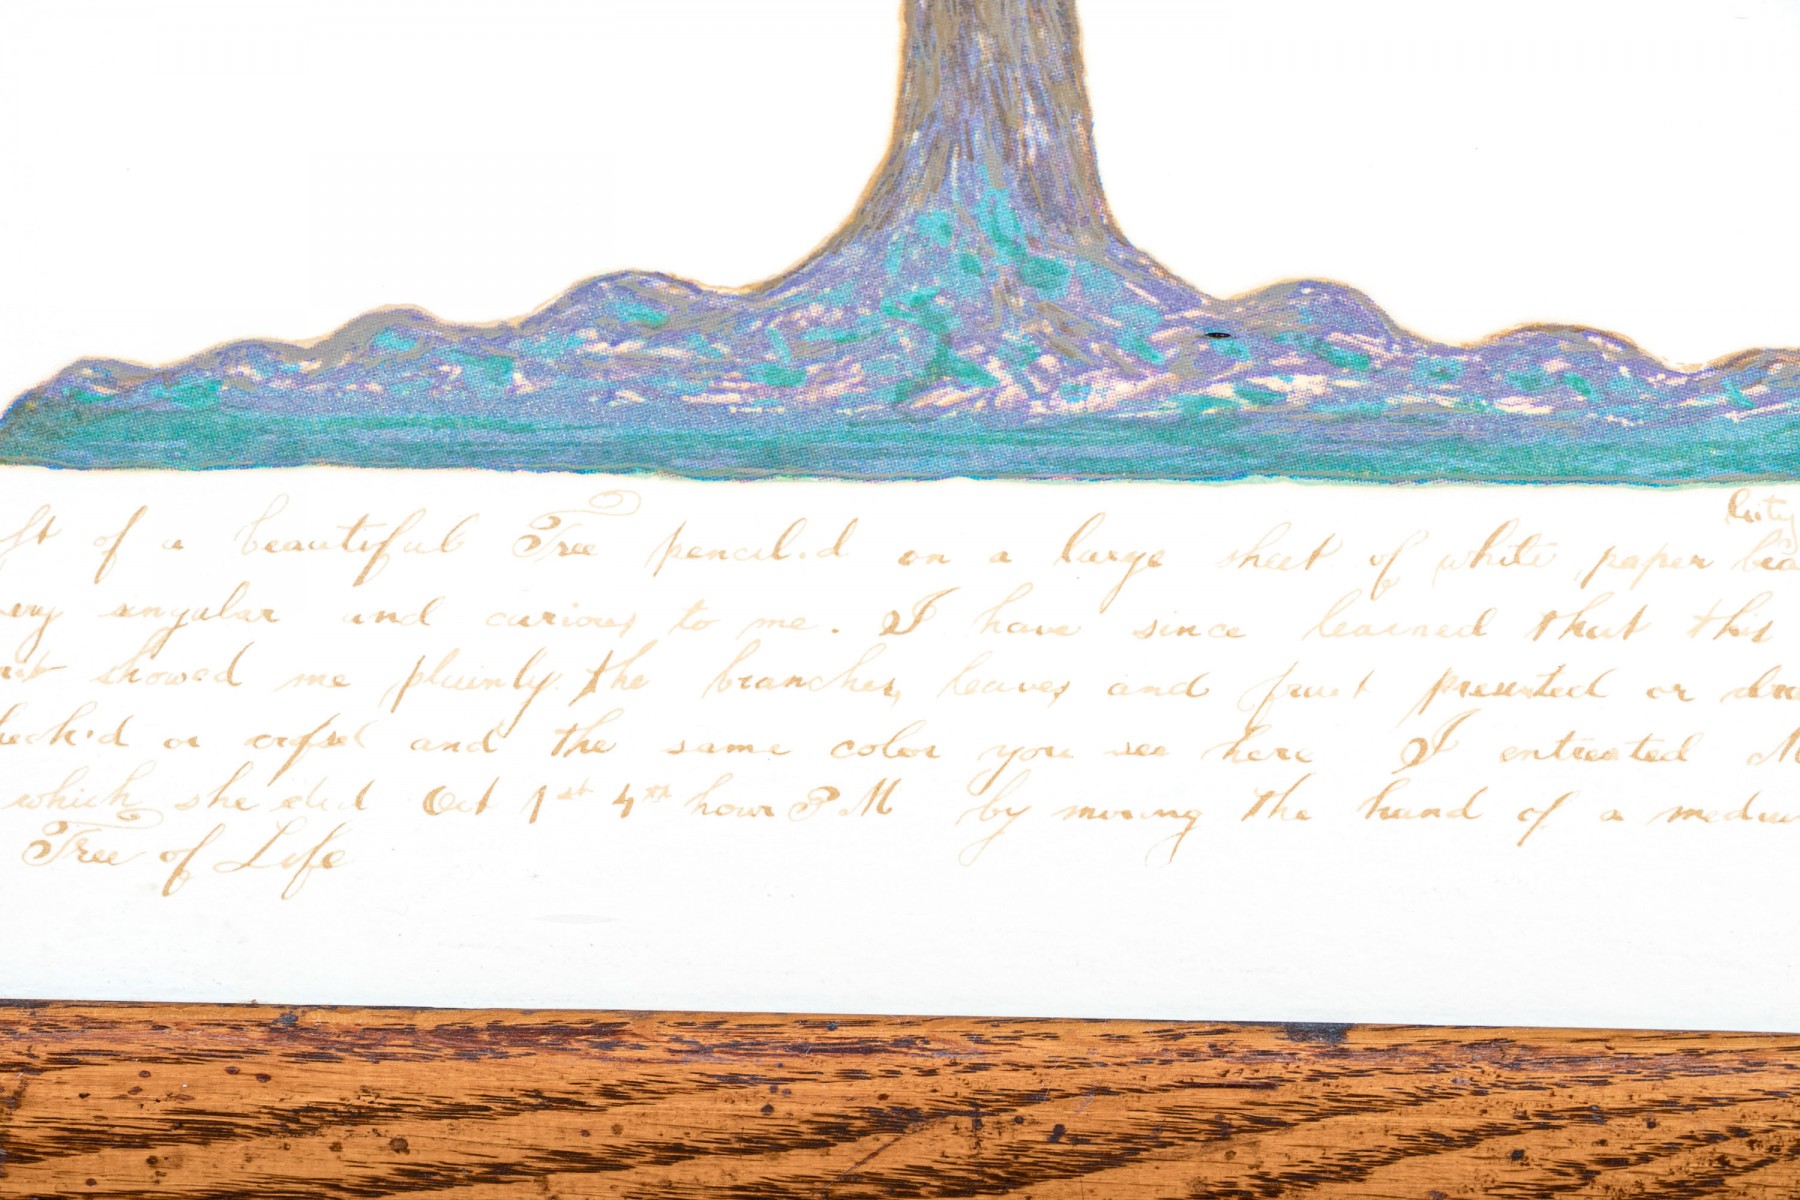 City
ft of a beautiful Tree pencil.d on a large sheet of white paper bea
ery singular and curious to me. I have since learned that this
rit showed me plainly. the branches, leaves and fruit presented or dra
heck'd or and the same color you see here I entreated M
which she did Oct 1st 4th hour P M by moving the hand of a medium
Tree of Life